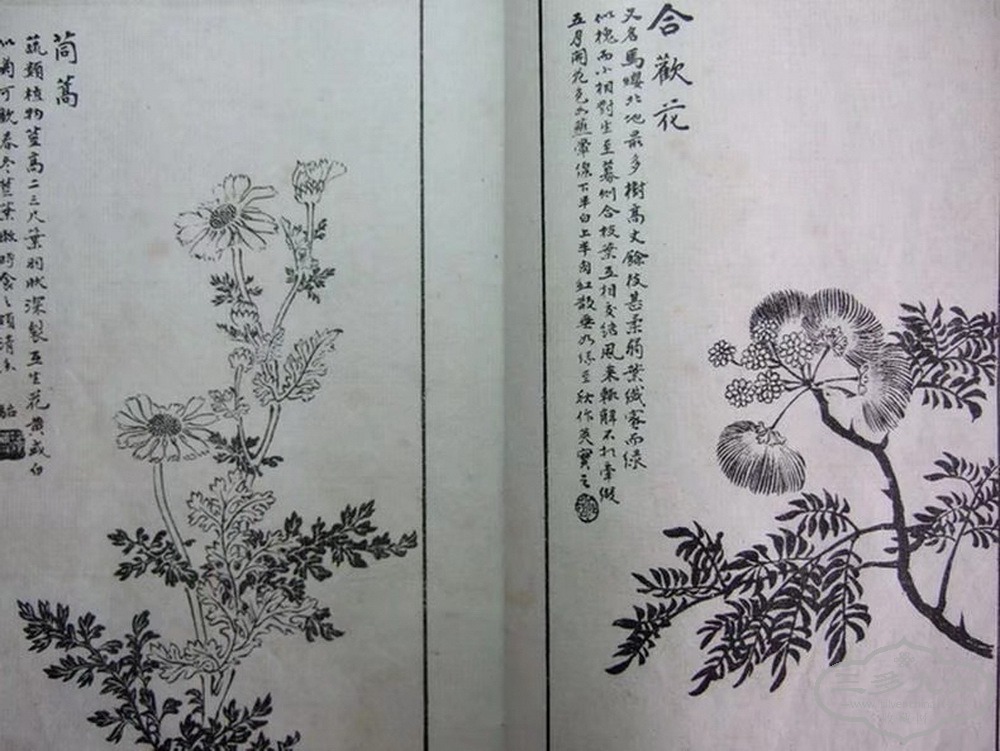 合歡花
又名馬纓北地最多樹高丈餘枝甚柔弱葉纖密而綠
似槐而小相對生至暮則合枝葉互相交結風來輒解不相牽綴
五月開花色如蘸暈線下半白上半肉紅散垂如絲至秋作莢實之
茼蒿
蔬類植物莖高二三尺葉羽狀深裂互生花黃或白
似菊可歡春冬莖葉嫩時食之頗清香
三多